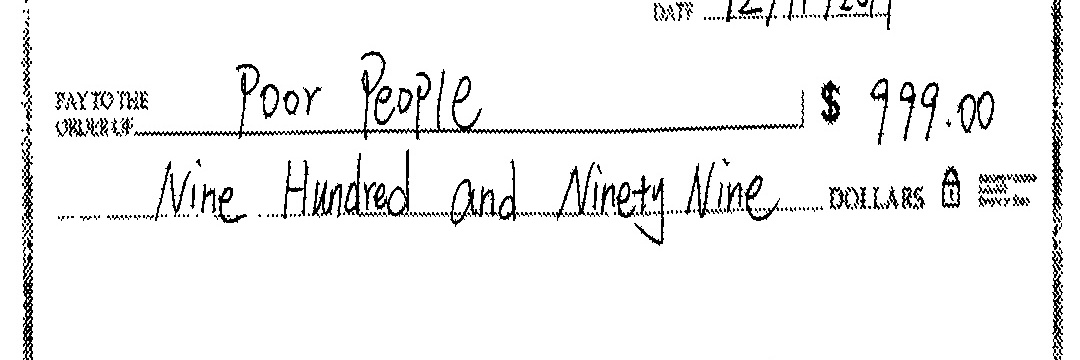 DATE
PAY TO THE
ORDER OF Poor People $ 999.00
Nine Hundred and Ninety Nine DOLLARS